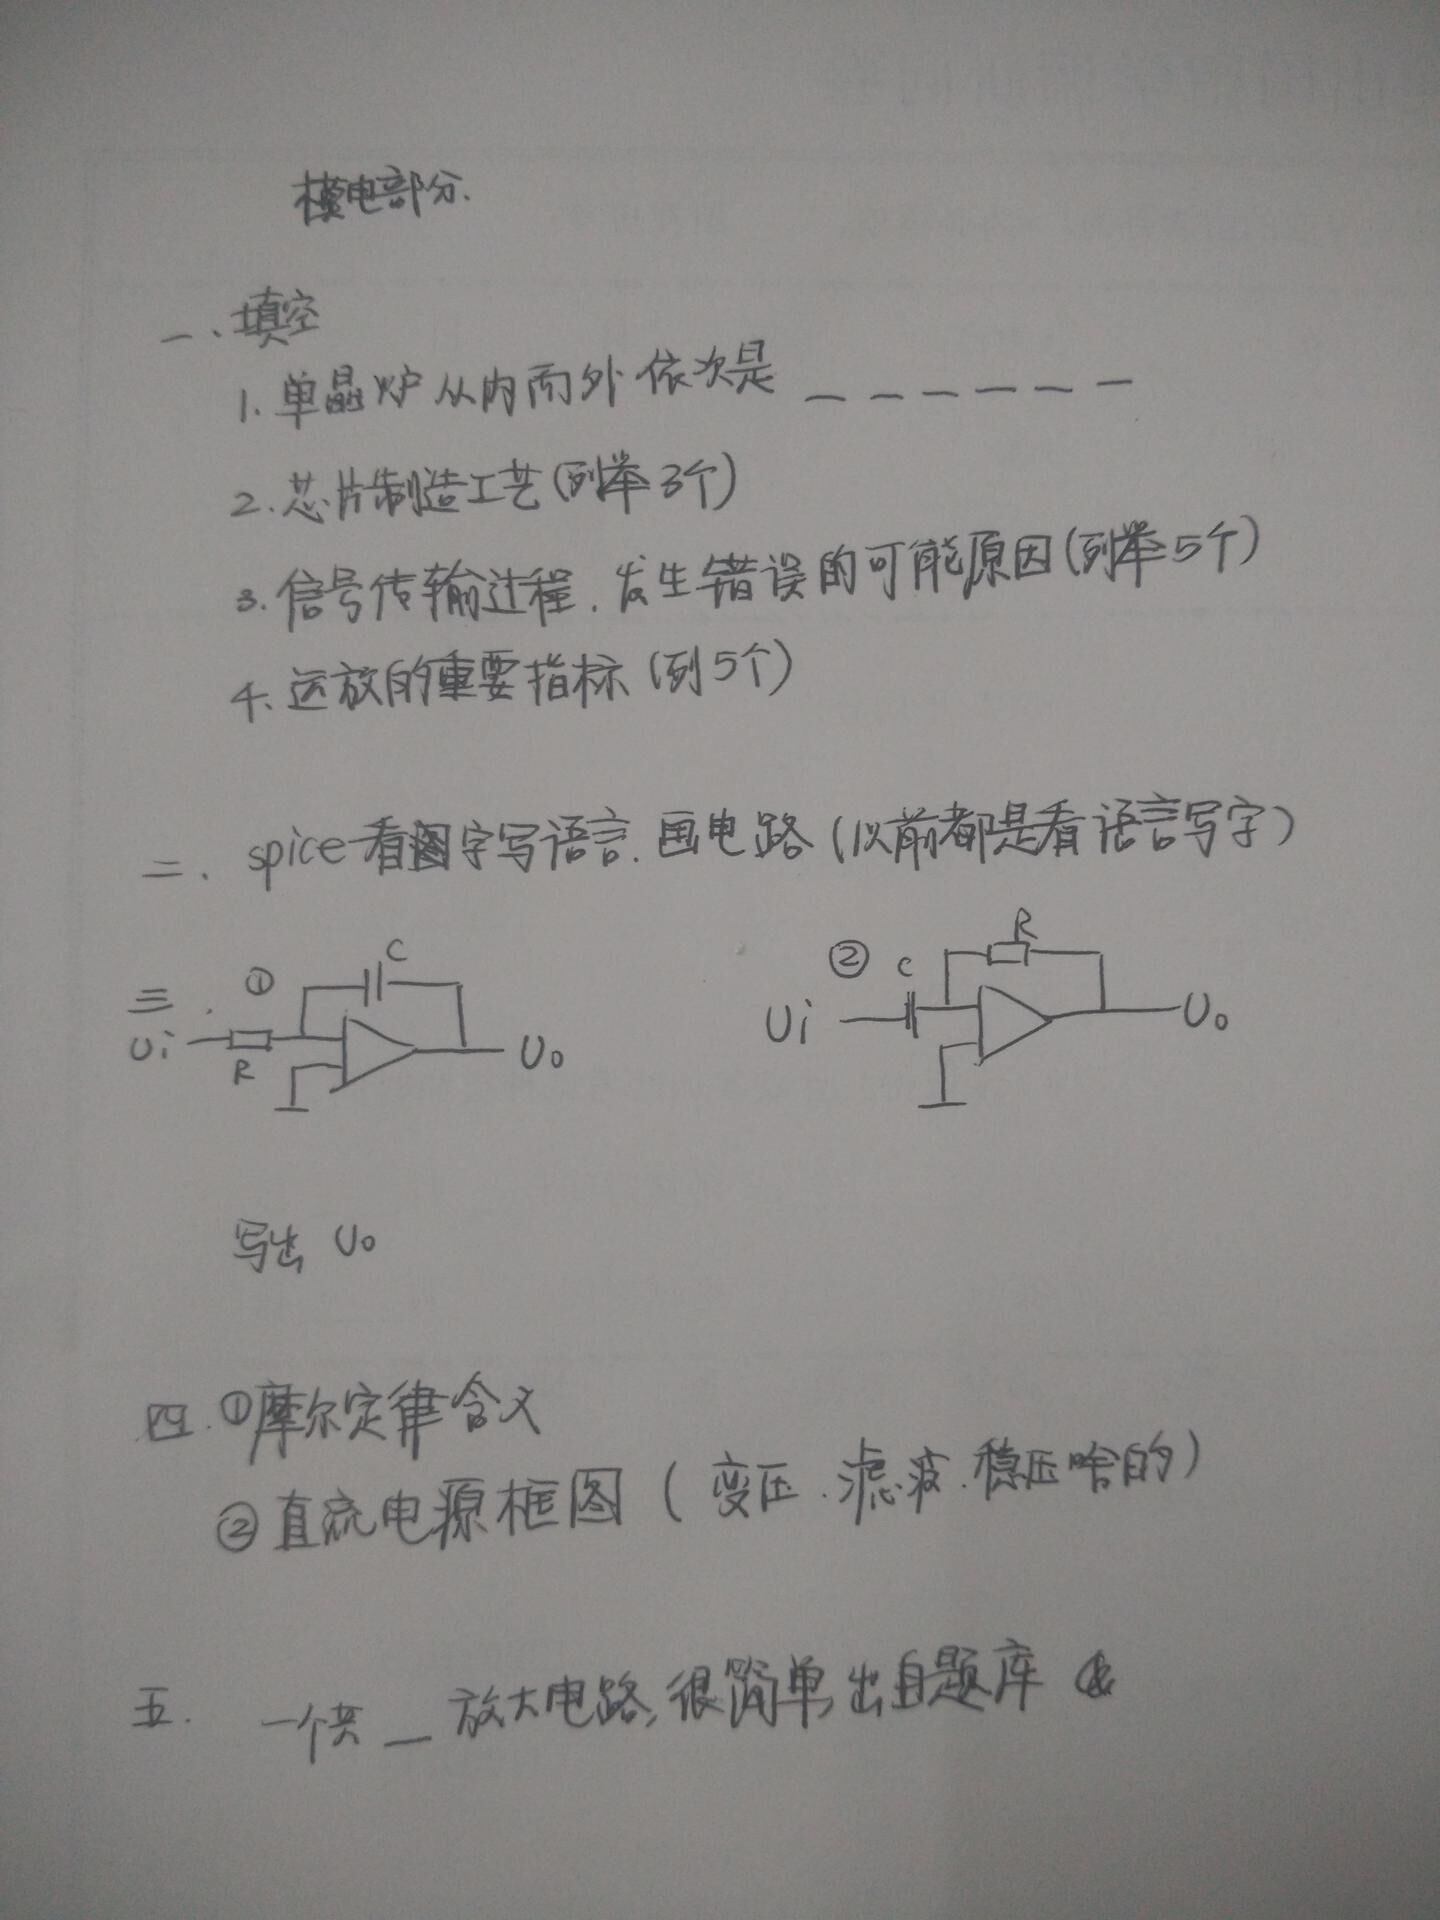 模电部分.
一、填空
1. 单晶炉从内而外依次是 _ _ _ _ _ _
2. 芯片制造工艺(列举3个)
3. 信号传输过程,发生错误的可能原因(列举5个)
4. 运放的重要指标(列5个)
二、spice看图字写语言.画电路(以前都是看语言写字)
三. ① C
Ui R Uo
② C R
Ui Uo
写出 Uo
四.①摩尔定律含义
②直流电源框图(变压.滤波.稳压啥的)
五. 一个共 _ 放大电路,很简单,出自题库